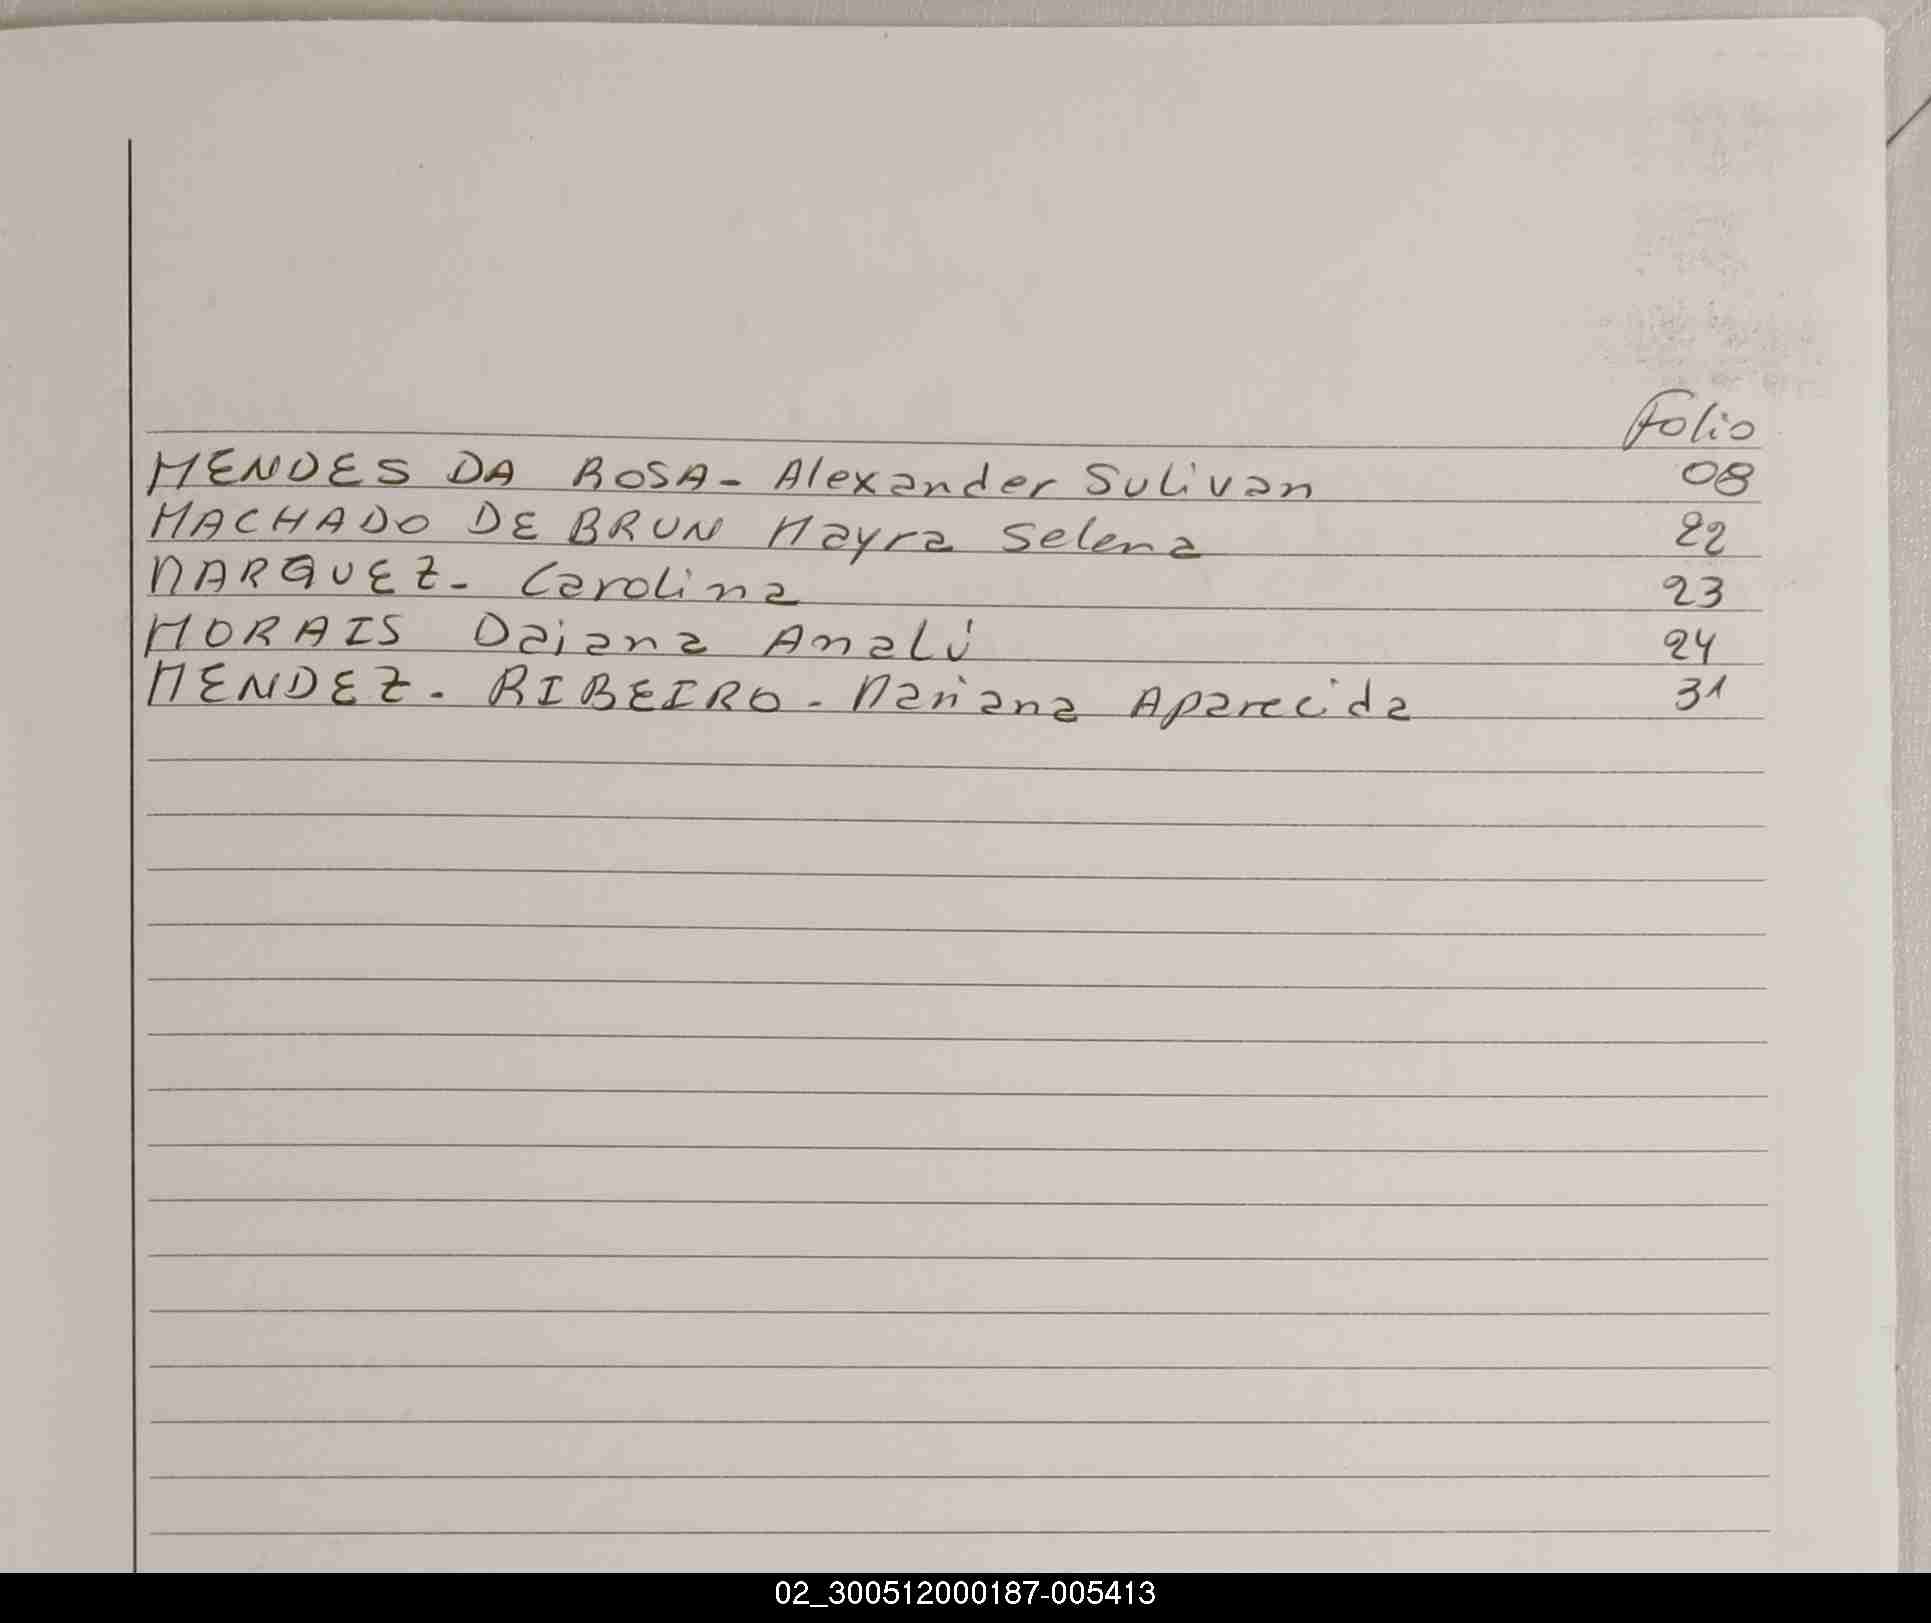 Folio
MENDES DA ROSA - Alexander Sulivan 08
MACHADO DE BRUN Mayra Selena 22
MARQUEZ - Carolina 23
MORAIS Daiana Analú 24
MENDEZ - RIBEIRO - Mariana Aparecida 31
02_300512000187-005413